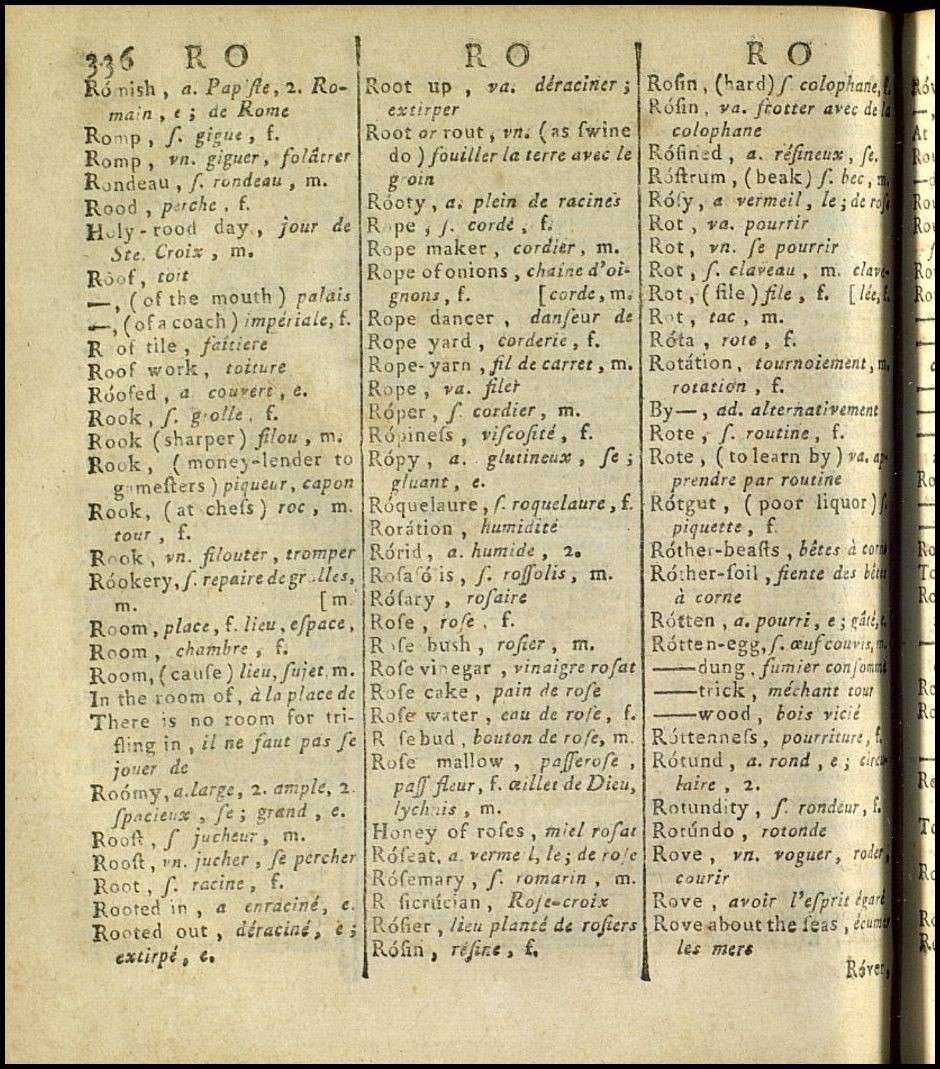 336 R O
Rómish, a. Papiſte, 2. Ro-
main, e; de Rome
Romp, ſ. gigue, f.
Romp, vn. giguer, folâtrer
Rondeau, ſ. rondeau, m.
Rood, perche, f.
Holy-rood day, jour de
Ste. Croix, m.
Roof, toit
—, (of the mouth) palais
—, (of a coach) impériale, f.
R of tile, faitiere
Roof work, toiture
Róofed, a couvert, e.
Rook, ſ. grolle, f.
Rook (sharper) filou, m.
Rook, (money-lender to
gameſters) piqueur, capon
Rook, (at cheſs) roc, m.
tour, f.
Rook, vn. filouter, tromper
Róokery, ſ. repaire de grolles,
m. [m.
Room, place, f. lieu, eſpace,
Room, chambre, f.
Room, (cauſe) lieu, ſujet, m.
In the room of, à la place de
There is no room for tri-
fling in, il ne faut pas ſe
jouer de
Roómy, a. large, 2. ample, 2.
ſpacieux, ſe; grand, e.
Rooſt, ſ jucheur, m.
Rooſt, vn. jucher, ſe percher
Root, ſ. racine, f.
Rooted in, a enraciné, e.
Rooted out, déraciné, e;
extirpé, e.
R O
Root up, va. déraciner;
extirper
Root or rout, vn. (as ſwine
do) fouiller la terre avec le
groin
Róoty, a. plein de racines
Rope, ſ. corde, f.
Rope maker, cordier, m.
Rope of onions, chaine d'oi-
gnons, f. [corde, m.
Rope dancer, danſeur de
Rope yard, corderie, f.
Rope-yarn, fil de carret, m.
Rope, va. filer
Róper, ſ. cordier, m.
Rópineſs, viſcoſité, f.
Rópy, a. glutineux, ſe;
gluant, e.
Róquelaure, ſ. roquelaure, f.
Rorátion, humidité
Rórid, a. humide, 2.
Roſaſólis, ſ. roſſolis, m.
Róſary, roſaire
Roſe, roſe, f.
Roſe bush, roſier, m.
Roſe vinegar, vinaigre roſat
Roſe cake, pain de roſe
Roſe water, eau de roſe, f.
R ſebud, bouton de roſe, m.
Roſe mallow, paſſeroſe,
paſſ fleur, f. œillet de Dieu,
lychnis, m.
Honey of roſes, miel roſat
Róſeat, a. vermeil, le; de roſe
Róſemary, ſ. romarin, m.
R ſicrúcian, Roſe-croix
Róſier, lieu planté de roſiers
Róſin, réſine, f.
R O
Roſin, (hard) ſ colophane, f.
Róſin, va. frotter avec de la
colophane
Róſined, a. réſineux, ſe.
Róſtrum, (beak) ſ. bec, m.
Róſy, a vermeil, le; de roſe
Rot, va. pourrir
Rot, vn. ſe pourrir
Rot, ſ. claveau, m. clave-
Rot, (file) file, f. [lée, f.
Rot, tac, m.
Róta, rote, f.
Rotátion, tournoiement, m.
rotation, f.
By—, ad. alternativement
Rote, ſ. routine, f.
Rote, (to learn by) va. ap-
prendre par routine
Rótgut, (poor liquor) ſ.
piquette, f
Róther-beaſts, bêtes à corne
Róther-ſoil, fiente des bêtes
à corne
Rótten, a. pourri, e; gâté, e.
Rótten-egg, ſ. œuf couvis, m.
—dung, fumier conſommé
—trick, méchant tour
—wood, bois vicié
Róttenneſs, pourriture, f.
Rótund, a. rond, e; circu-
laire, 2.
Rotundity, ſ. rondeur, f.
Rotúndo, rotonde
Rove, vn. voguer, roder,
courir
Rove, avoir l'eſprit égaré
Rove about the ſeas, écumer
les mers
Róver,